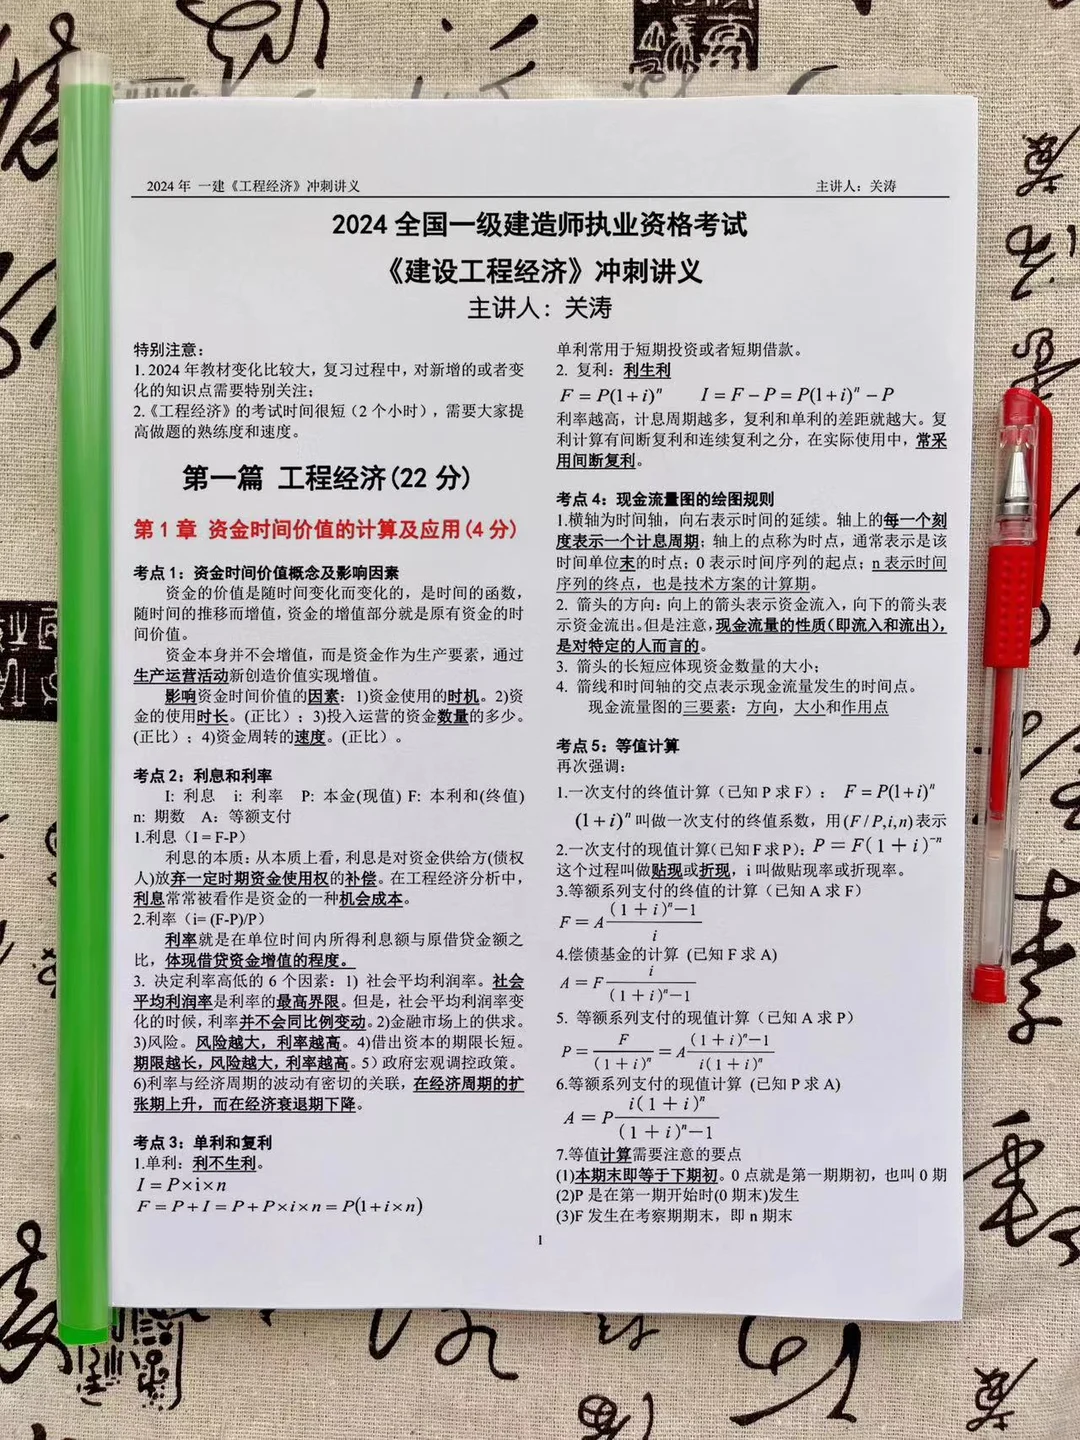 2024 年 一建《工程经济》冲刺讲义
主讲人：关涛
2024 全国一级建造师执业资格考试
《建设工程经济》冲刺讲义
主讲人：关涛
特别注意：
1. 2024 年教材变化比较大，复习过程中，对新增的或者变
化的知识点需要特别关注；
2.《工程经济》的考试时间很短（2 个小时），需要大家提
高做题的熟练度和速度。
第一篇 工程经济(22 分)
第 1 章 资金时间价值的计算及应用(4 分)
考点 1：资金时间价值概念及影响因素
资金的价值是随时间变化而变化的，是时间的函数，
随时间的推移而增值，资金的增值部分就是原有资金的时
间价值。
资金本身并不会增值，而是资金作为生产要素，通过
生产运营活动新创造价值实现增值。
影响资金时间价值的因素：1)资金使用的时机。2)资
金的使用时长。(正比）；3)投入运营的资金数量的多少。
(正比）；4)资金周转的速度。(正比）。
考点 2：利息和利率
I: 利息 i: 利率 P: 本金(现值) F: 本利和(终值)
n: 期数 A：等额支付
1.利息（I = F-P)
利息的本质：从本质上看，利息是对资金供给方(债权
人)放弃一定时期资金使用权的补偿。在工程经济分析中，
利息常常被看作是资金的一种机会成本。
2.利率（i= (F-P)/P）
利率就是在单位时间内所得利息额与原借贷金额之
比，体现借贷资金增值的程度。
3. 决定利率高低的 6 个因素：1）社会平均利润率。社会
平均利润率是利率的最高界限。但是，社会平均利润率变
化的时候，利率并不会同比例变动。2)金融市场上的供求。
3)风险。风险越大，利率越高。4)借出资本的期限长短。
期限越长，风险越大，利率越高。5）政府宏观调控政策。
6)利率与经济周期的波动有密切的关联，在经济周期的扩
张期上升，而在经济衰退期下降。
考点 3：单利和复利
1.单利：利不生利。
I = P×i×n
F = P+I = P+P×i×n = P(1+i×n)
单利常用于短期投资或者短期借款。
2. 复利：利生利
F = P(1+i)ⁿ I = F－P = P(1+i)ⁿ－P
利率越高，计息周期越多，复利和单利的差距就越大。复
利计算有间断复利和连续复利之分，在实际使用中，常采
用间断复利。
考点 4：现金流量图的绘图规则
1.横轴为时间轴，向右表示时间的延续。轴上的每一个刻
度表示一个计息周期；轴上的点称为时点，通常表示是该
时间单位末的时点；0 表示时间序列的起点；n 表示时间
序列的终点，也是技术方案的计算期。
2. 箭头的方向：向上的箭头表示资金流入，向下的箭头表
示资金流出。但是注意，现金流量的性质(即流入和流出)，
是对特定的人而言的。
3. 箭头的长短应体现资金数量的大小；
4. 箭线和时间轴的交点表示现金流量发生的时间点。
现金流量图的三要素：方向，大小和作用点
考点 5：等值计算
再次强调：
1.一次支付的终值计算（已知 P 求 F）： F = P(1+i)ⁿ
(1+i)ⁿ 叫做一次支付的终值系数，用(F / P,i,n)表示
2.一次支付的现值计算(已知 F 求 P): P = F(1+i)⁻ⁿ
这个过程叫做贴现或折现，i 叫做贴现率或折现率。
3.等额系列支付的终值的计算（已知 A 求 F）
F = A ((1+i)ⁿ−1)/i
4.偿债基金的计算 (已知 F 求 A)
A = F i/((1+i)ⁿ−1)
5. 等额系列支付的现值计算（已知 A 求 P）
P = F/(1+i)ⁿ = A ((1+i)ⁿ−1)/(i(1+i)ⁿ)
6.等额系列支付的现值计算 (已知 P 求 A)
A = P i(1+i)ⁿ/((1+i)ⁿ−1)
7.等值计算需要注意的要点
(1)本期末即等于下期初。0 点就是第一期期初，也叫 0 期
(2)P 是在第一期开始时(0 期末)发生
(3)F 发生在考察期期末，即 n 期末
1